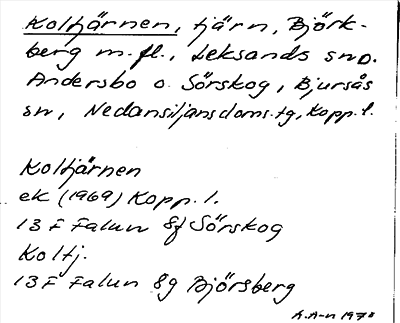 Koltjärnen, tjärn, Björk-
berg m.fl., Leksands sn o.
Andersbo o. Sörskog, Bjursås
sn, Nedansiljans doms.tg, Kopp. l.
Koltjärnen
ek (1969) Kopp. l.
13 F Falun 8f Sörskog
Koltj.
13 F Falun 8g Björsberg
A.A-n 197